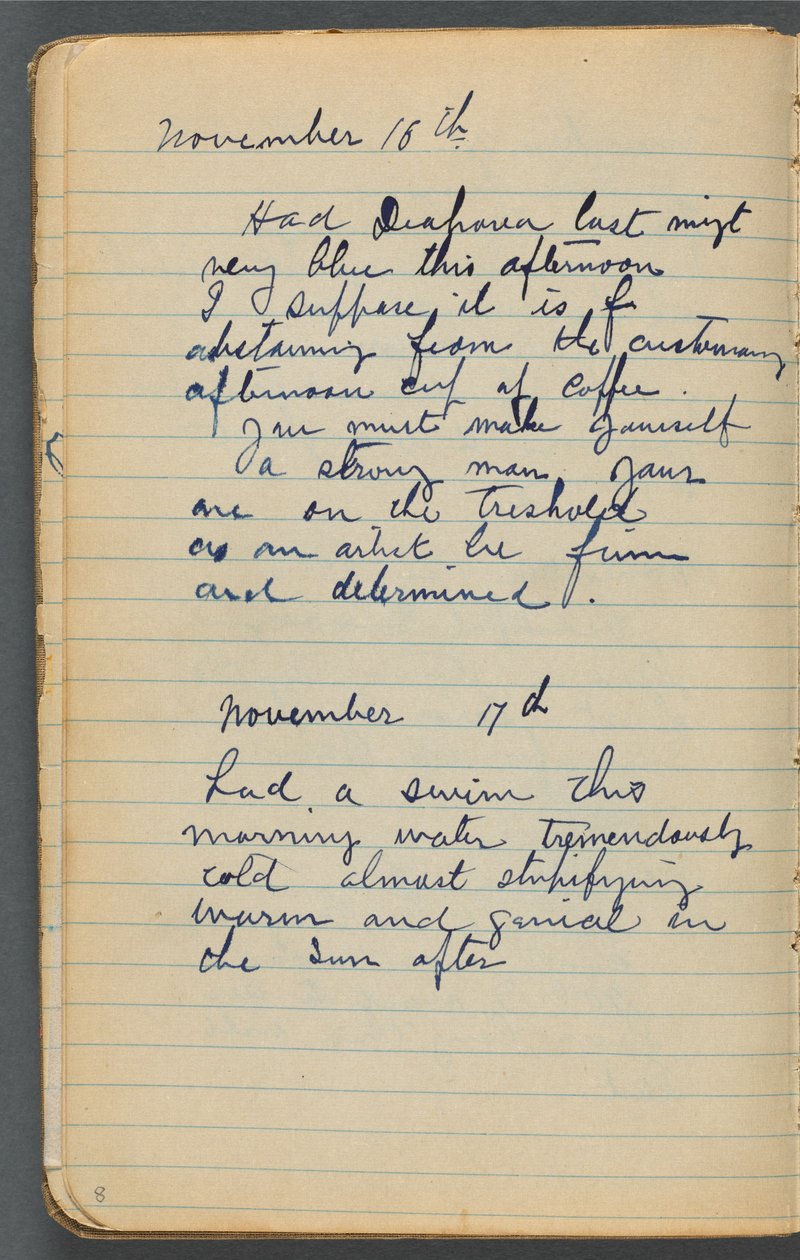 November 16th
Had last night
very blue this afternoon
I suppose it is f
abstaining from the customary
afternoon cup of coffee.
You must make yourself
a strong man. Your
are on the treshold
as an artist be firm
and determined.
November 17th
had a swim this
morning water tremendously
cold almost stupifying
warm and genial in
the sun after
8